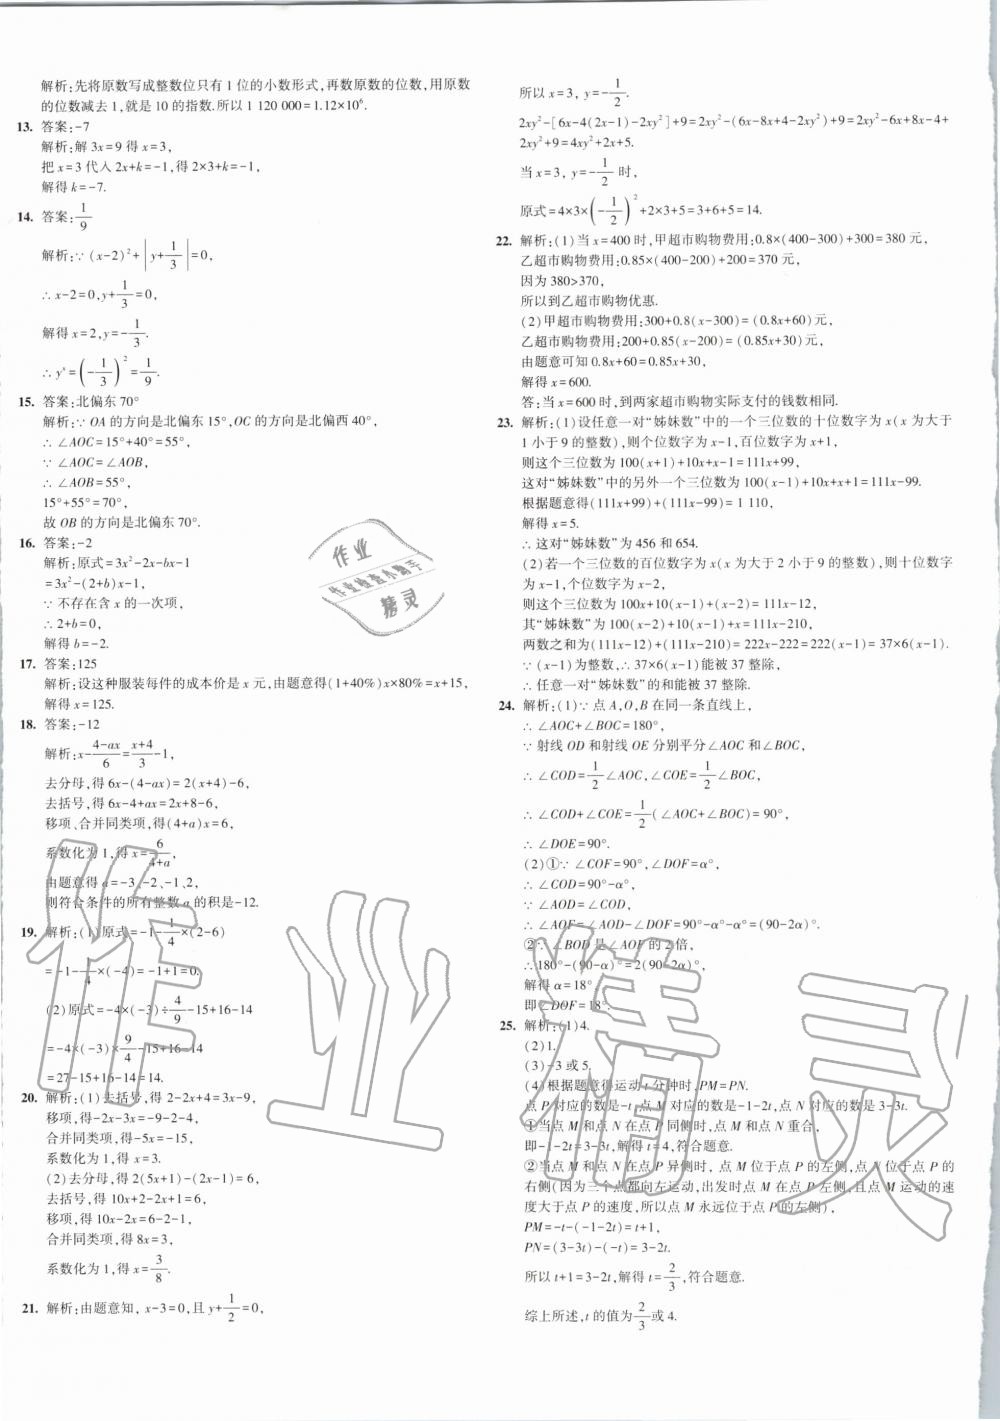 解析:先将原数写成整数位只有 1 位的小数形式,再数原数的位数,用原数
的位数减去 1,就是 10 的指数.所以 1 120 000=1.12×10⁶.
13. 答案:-7
解析:解 3x=9 得 x=3,
把 x=3 代入 2x+k=-1,得 2×3+k=-1,
解得 k=-7.
14. 答案:1/9
解析:∵ (x-2)²+|y+1/3|=0,
∴ x-2=0,y+1/3=0,
解得 x=2,y=-1/3.
∴ yˣ=(-1/3)²=1/9.
15. 答案:北偏东 70°
解析:∵ OA 的方向是北偏东 15°,OC 的方向是北偏西 40°,
∴ ∠AOC=15°+40°=55°,
∵ ∠AOC=∠AOB,
∴ ∠AOB=55°,
15°+55°=70°,
故 OB 的方向是北偏东 70°.
16. 答案:-2
解析:原式=3x²-2x-bx-1
=3x²-(2+b)x-1,
∵ 不存在含 x 的一次项,
∴ 2+b=0,
解得 b=-2.
17. 答案:125
解析:设这种服装每件的成本价是 x 元,由题意得(1+40%)x×80%=x+15,
解得 x=125.
18. 答案:-12
解析:x-(4-ax)/6=(x+4)/3-1,
去分母,得 6x-(4-ax)=2(x+4)-6,
去括号,得 6x-4+ax=2x+8-6,
移项、合并同类项,得(4+a)x=6,
系数化为 1,得 x=6/(4+a),
由题意得 a=-3、-2、-1、2,
则符合条件的所有整数 a 的积是-12.
19. 解析:(1)原式=-1-1/4×(2-6)
=-1-1/4×(-4)=-1+1=0.
(2)原式=-4×(-3)÷4/9-15+16-14
=-4×(-3)×9/4-15+16-14
=27-15+16-14=14.
20. 解析:(1)去括号,得 2-2x+4=3x-9,
移项,得-2x-3x=-9-2-4,
合并同类项,得-5x=-15,
系数化为 1,得 x=3.
(2)去分母,得 2(5x+1)-(2x-1)=6,
去括号,得 10x+2-2x+1=6,
移项,得 10x-2x=6-2-1,
合并同类项,得 8x=3,
系数化为 1,得 x=3/8.
21. 解析:由题意知, x-3=0,且 y+1/2=0,
所以 x=3, y=-1/2.
2xy²-[6x-4(2x-1)-2xy²]+9=2xy²-(6x-8x+4-2xy²)+9=2xy²-6x+8x-4+
2xy²+9=4xy²+2x+5.
当 x=3, y=-1/2 时,
原式=4×3×(-1/2)²+2×3+5=3+6+5=14.
22. 解析:(1)当 x=400 时,甲超市购物费用:0.8×(400-300)+300=380 元,
乙超市购物费用:0.85×(400-200)+200=370 元,
因为 380>370,
所以到乙超市购物优惠.
(2)甲超市购物费用:300+0.8(x-300)=(0.8x+60)元,
乙超市购物费用:200+0.85(x-200)=(0.85x+30)元,
由题意可知 0.8x+60=0.85x+30,
解得 x=600.
答:当 x=600 时,到两家超市购物实际支付的钱数相同.
23. 解析:(1)设任意一对“姊妹数”中的一个三位数的十位数字为 x(x 为大于
1 小于 9 的整数),则个位数字为 x-1,百位数字为 x+1,
则这个三位数为 100(x+1)+10x+x-1=111x+99,
这对“姊妹数”中的另外一个三位数为 100(x-1)+10x+x+1=111x-99.
根据题意得(111x+99)+(111x-99)=1 110,
解得 x=5.
∴ 这对“姊妹数”为 456 和 654.
(2)若一个三位数的百位数字为 x(x 为大于 2 小于 9 的整数),则十位数字
为 x-1,个位数字为 x-2,
则这个三位数为 100x+10(x-1)+(x-2)=111x-12,
其“姊妹数”为 100(x-2)+10(x-1)+x=111x-210,
两数之和为(111x-12)+(111x-210)=222x-222=222(x-1)=37×6(x-1).
∵ (x-1)为整数,∴ 37×6(x-1)能被 37 整除,
∴ 任意一对“姊妹数”的和能被 37 整除.
24. 解析:(1)∵ 点 A,O,B 在同一条直线上,
∴ ∠AOC+∠BOC=180°,
∵ 射线 OD 和射线 OE 分别平分∠AOC 和∠BOC,
∴ ∠COD=1/2∠AOC,∠COE=1/2∠BOC,
∴ ∠COD+∠COE=1/2(∠AOC+∠BOC)=90°,
∴ ∠DOE=90°.
(2)①∵ ∠COF=90°,∠DOF=α°,
∴ ∠COD=90°-α°,
∵ ∠AOD=∠COD,
∴ ∠AOF=∠AOD-∠DOF=90°-α°-α°=(90-2α)°.
②∵ ∠BOD 是∠AOF 的 2 倍,
∴ 180°-(90-α)°=2(90-2α)°,
解得 α=18°
即∠DOF=18°.
25. 解析:(1)4.
(2)1.
(3)-3 或 5.
(4)根据题意得运动 t 分钟时,PM=PN.
点 P 对应的数是-t,点 M 对应的数是-1-2t,点 N 对应的数是 3-3t.
①当点 M 和点 N 在点 P 同侧时,点 M 和点 N 重合,
即-1-2t=3-3t,解得 t=4,符合题意.
②当点 M 和点 N 在点 P 异侧时,点 M 位于点 P 的左侧,点 N 位于点 P 的
右侧(因为三个点都向左运动,出发时点 M 在点 P 的左侧,且点 M 运动的速
度大于点 P 的速度,所以点 M 永远位于点 P 的左侧),
PM=-t-(-1-2t)=t+1,
PN=(3-3t)-(-t)=3-2t.
所以 t+1=3-2t,解得 t=2/3,符合题意.
综上所述,t 的值为2/3或 4.
作业
作业检查小助手
精灵
作业精灵